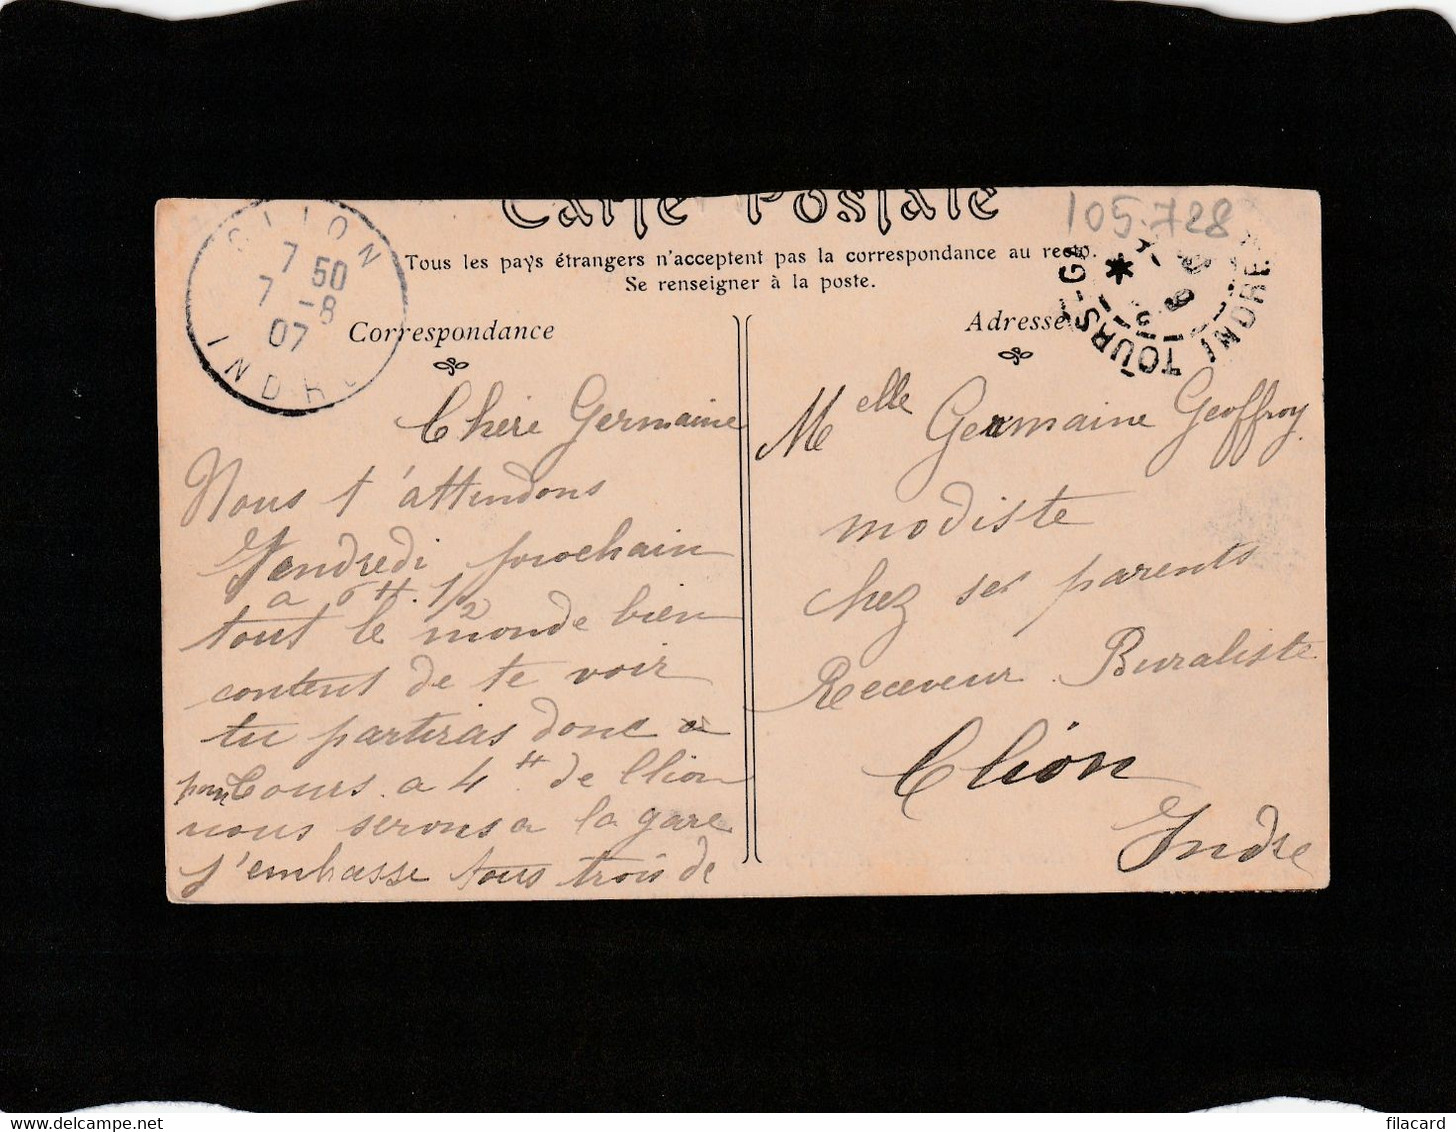 Carte Postale
105.728
Tous les pays étrangers n'acceptent pas la correspondance au recto.
Se renseigner à la poste.
CLION
7 50
7 -8
07
INDRE
TOURS-GA
INDRE
Correspondance
Adresse
Chère Germaine
Nous t'attendons
Vendredi prochain
a 6H. 1/2
tout le monde bien
content de te voir
tu partiras donc a
pour Tours a 4H. de Clion
nous serons a la gare
J'embrasse tous trois de
Melle Germaine Geoffroy
modiste
chez ses parents
Receveur Buraliste
Clion
Indre
www.delcampe.net
filacard